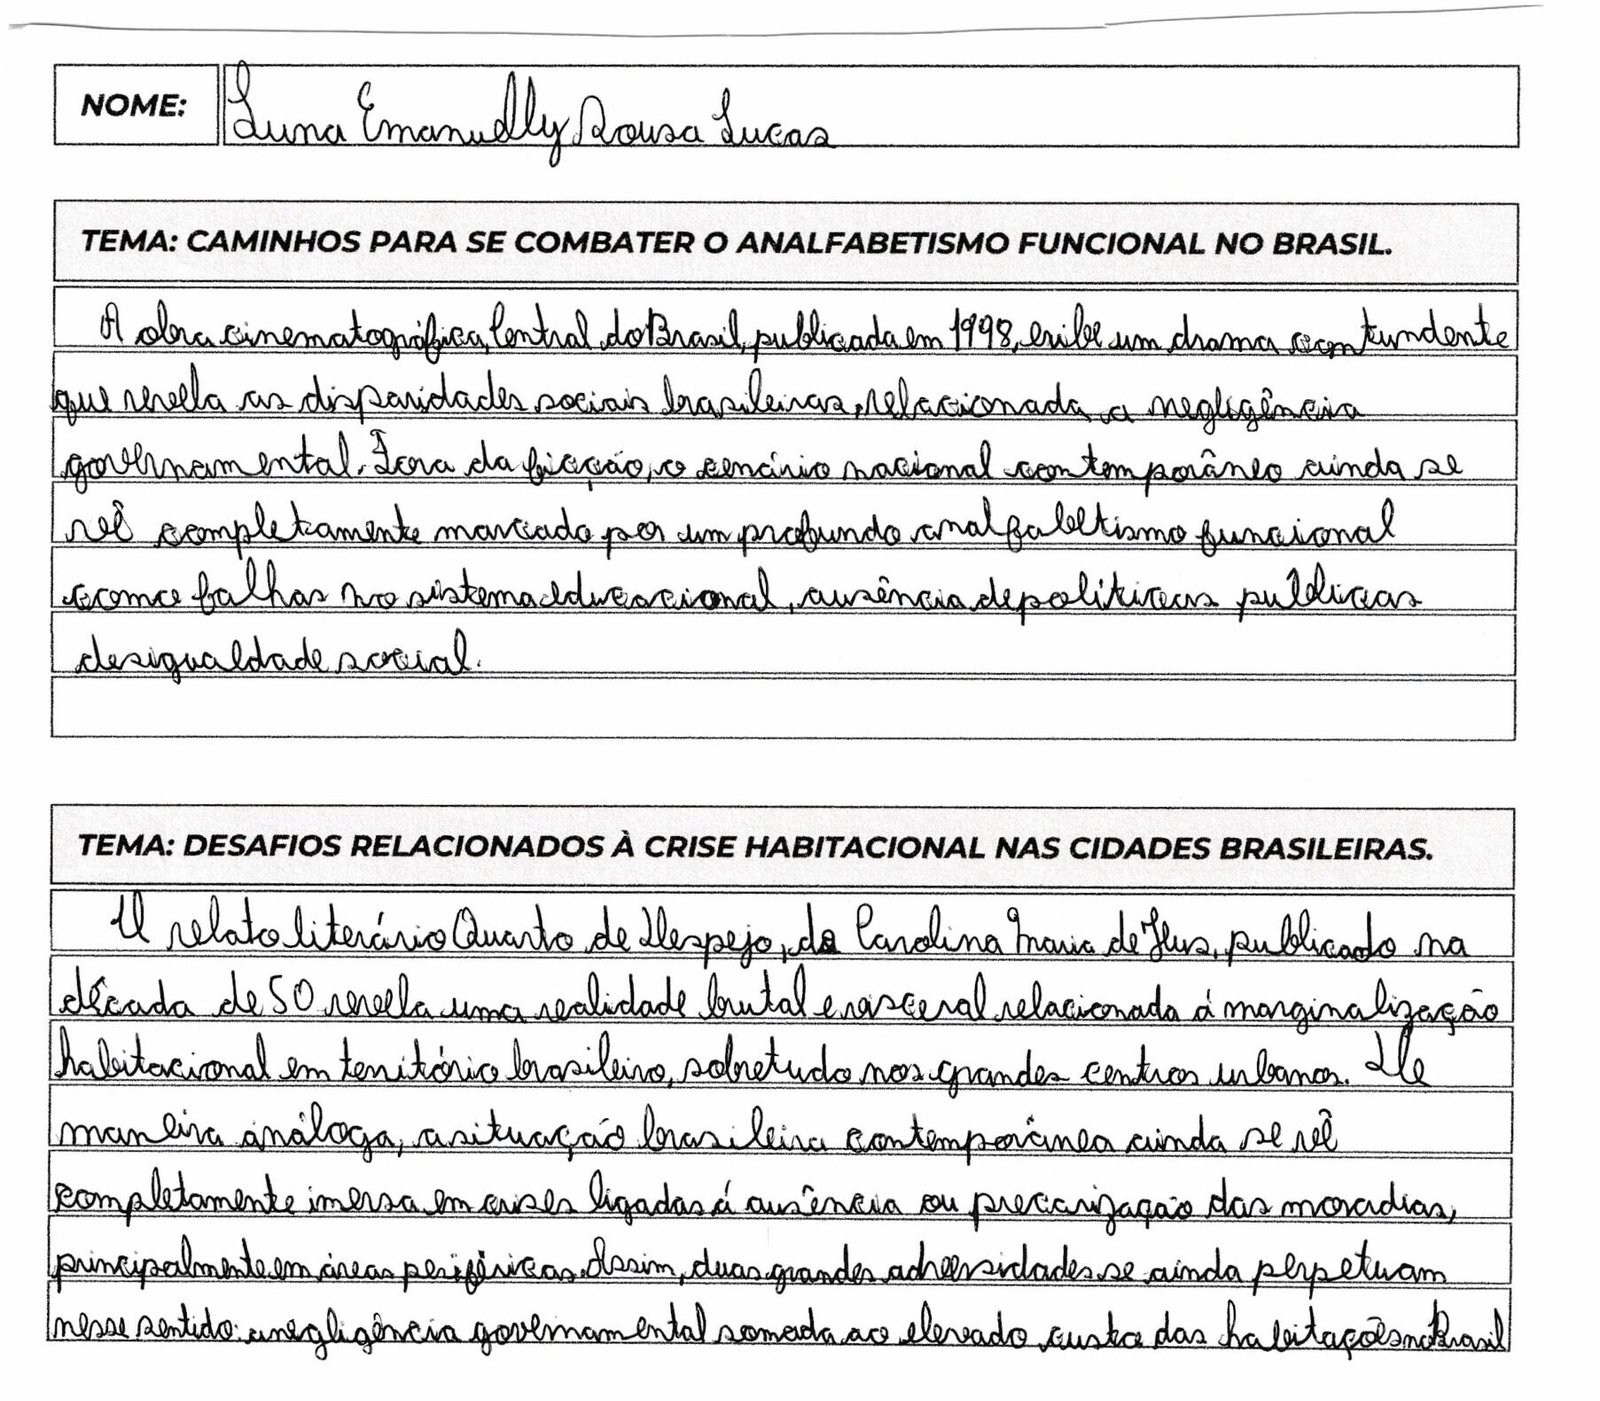 NOME: Luna Emanuelly Sousa Lucas
TEMA: CAMINHOS PARA SE COMBATER O ANALFABETISMO FUNCIONAL NO BRASIL.
A obra cinematográfica, Central do Brasil, publicada em 1998, exibe um drama contundente
que revela as disparidades sociais brasileiras, relacionada a negligência
governamental. Fora da ficção, o cenário nacional contemporâneo ainda se
vê completamente marcado por um profundo analfabetismo funcional
como falhas no sistema educacional, ausência de políticas públicas
desigualdade social.
TEMA: DESAFIOS RELACIONADOS À CRISE HABITACIONAL NAS CIDADES BRASILEIRAS.
O relato literário Quarto de Despejo, de Carolina Maria de Jesus, publicado na
década de 50 revela uma realidade brutal e visceral relacionada á marginalização
habitacional em território brasileiro, sobretudo nos grandes centros urbanos. De
maneira análoga, a situação brasileira contemporânea ainda se vê
completamente imersa em crises ligadas á ausência ou precarização das moradias,
principalmente em áreas periféricas. Assim, duas grandes adversidades se ainda perpetuam
nesse sentido: a negligência governamental somada ao elevado custo das habitações no Brasil